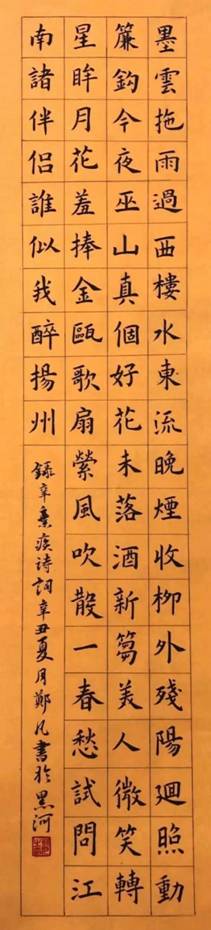 墨雲拖雨過西樓水東流晚煙收柳外殘陽迴照動
簾鈎今夜巫山真個好花未落酒新篘美人微笑轉
星眸月花羞捧金甌歌扇縈風吹散一春愁試問江
南諸伴侶誰似我醉揚州
錄辛棄疾詩詞辛丑夏月鄭凡書於黑河